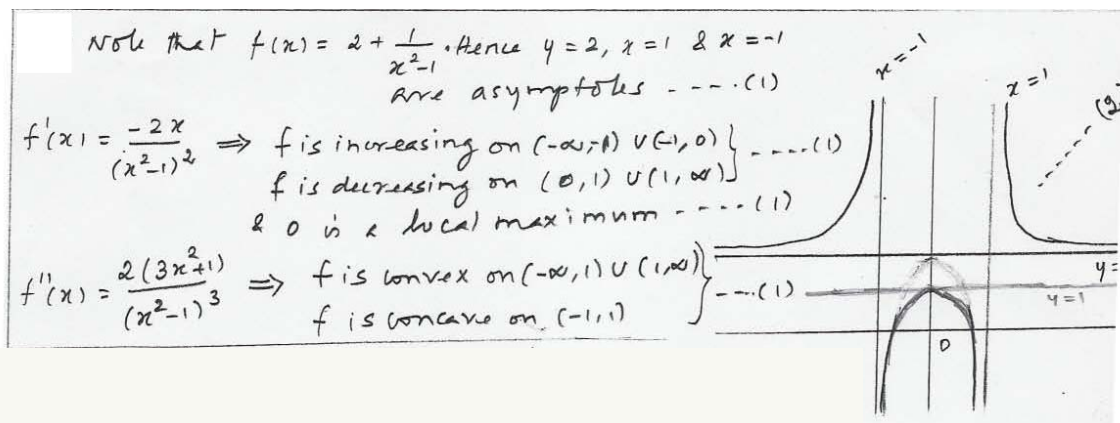 Note that f(x) = 2 + 1/(x²-1). Hence y = 2, x = 1 & x = -1
are asymptotes - - - - (1)
f'(x) = -2x/(x²-1)² ⇒ f is increasing on (-∞,-1) ∪ (-1,0) } - - - - (1)
f is decreasing on (0,1) ∪ (1,∞)
& 0 is a local maximum - - - - (1)
f''(x) = 2(3x²+1)/(x²-1)³ ⇒ f is convex on (-∞,1) ∪ (1,∞) } - - - (1)
f is concave on (-1,1)
x = -1
x = 1
(2
y =
y=1
0